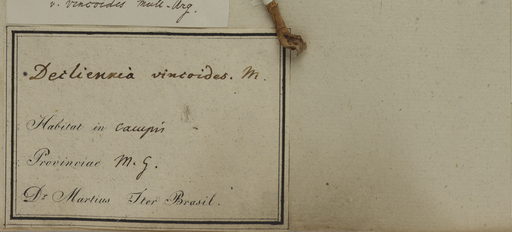 v. vincoides Müll-Arg.
Declieuxia vincoides. M.
Habitat in campis
Provinciae M. G.
Dr Martius Iter Brasil.